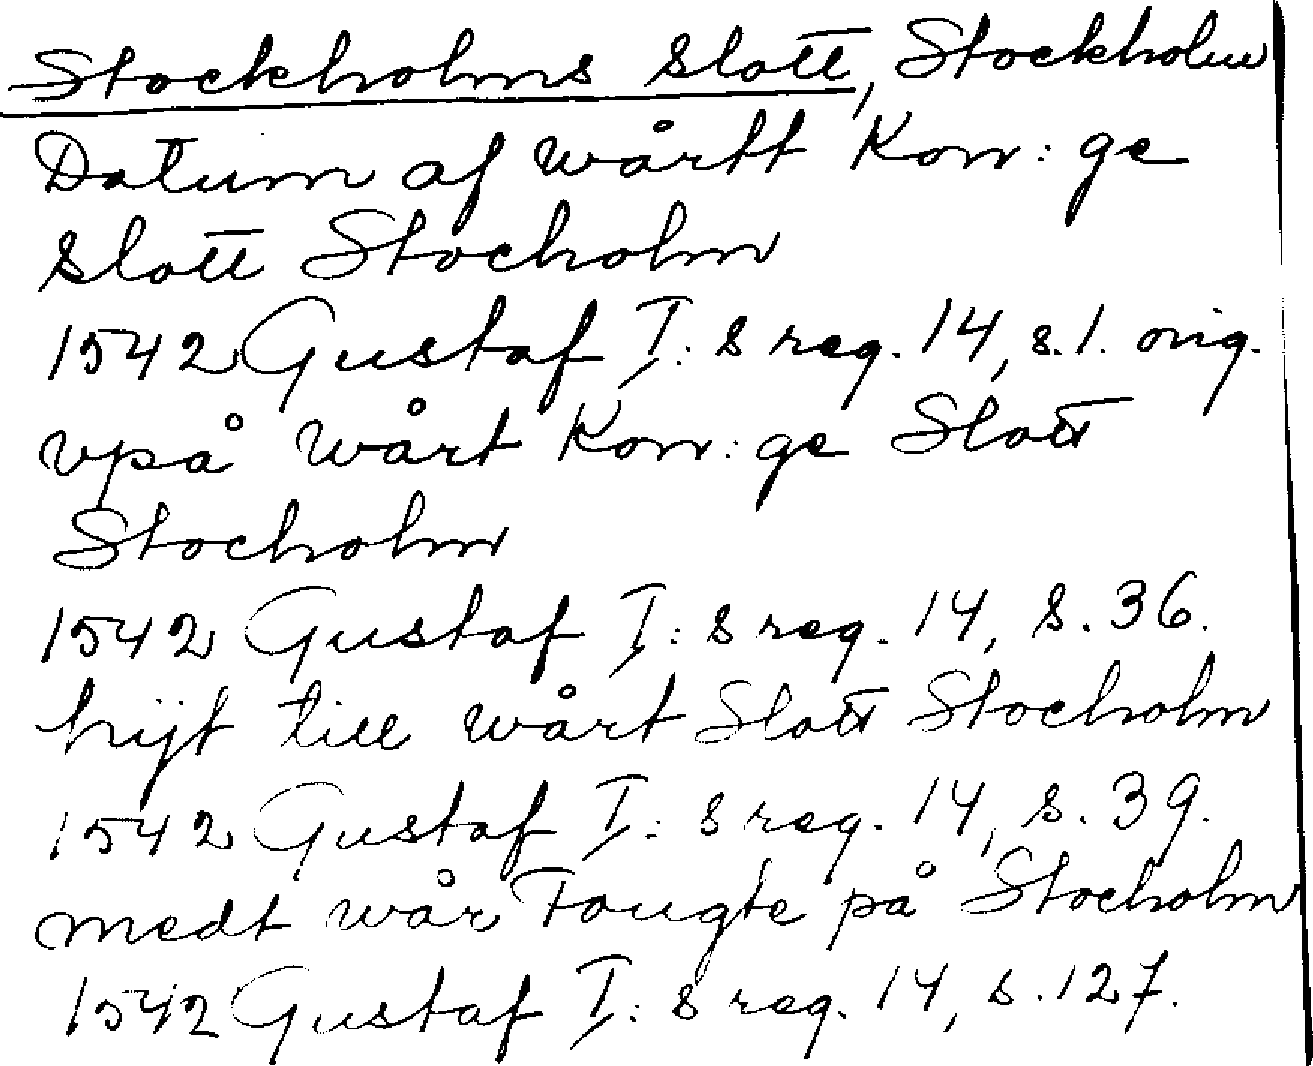 Stockholms slott, Stockholm
Datum af wårtt Kon:ge
slott Stocholm
1542 Gustaf I:s reg. 14, s. 1. orig.
vpå wårt Kon:ge Slott
Stocholm
1542 Gustaf I:s reg. 14, s. 36.
hijt till wårt Slott Stocholm
1542 Gustaf I:s reg. 14, s. 39.
medt wår Fougte på Stocholm
1542 Gustaf I:s reg. 14, s. 127.